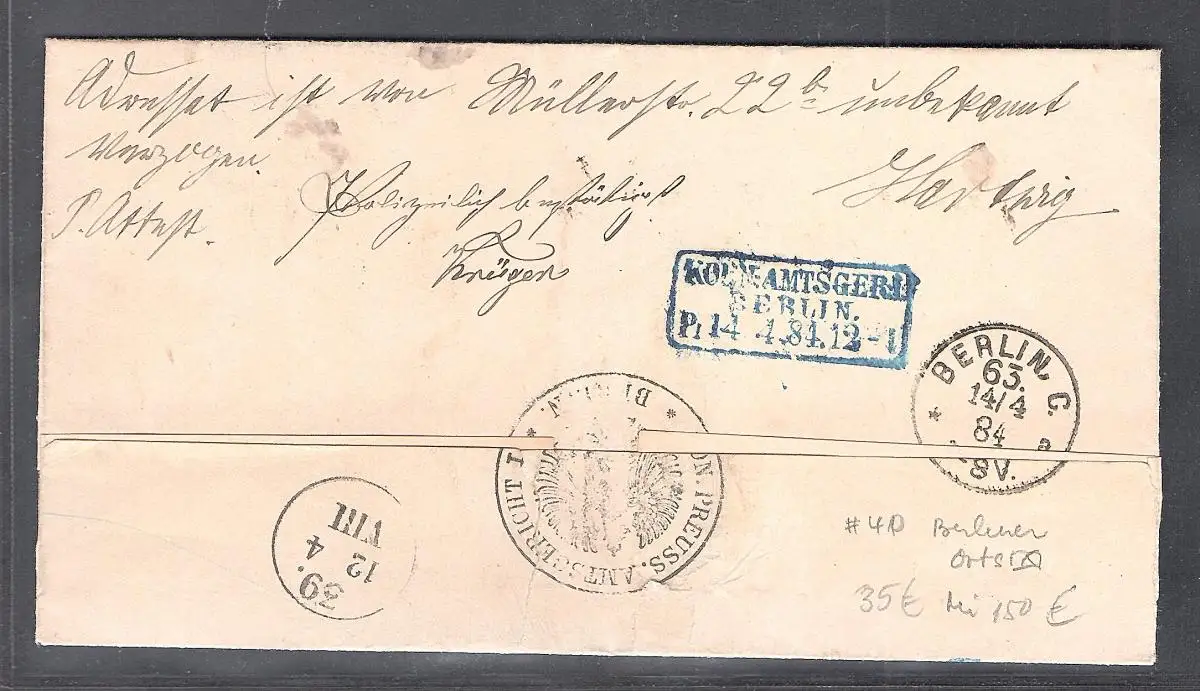 Adressat ist von Müllerstr. 22b unbekannt
verzogen.
P. Attest.
Polizeilich bestätigt
Hartwig
Krüger
KOEN. AMTSGER. I.
BERLIN.
Pr 14 4.84. 12-1
BERLIN, C.
63.
14/4
84
8V.
* a
KÖN. PREUSS. AMTSGERICHT I * BERLIN. *
39.
12 4
VIII
#4D Berliner
Orts
35€ Mi 150 €